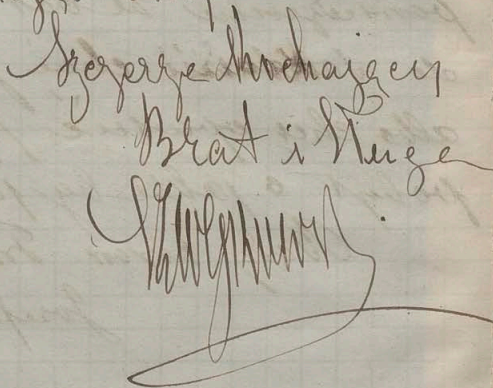 Szczerze kochający
Brat i Sługa